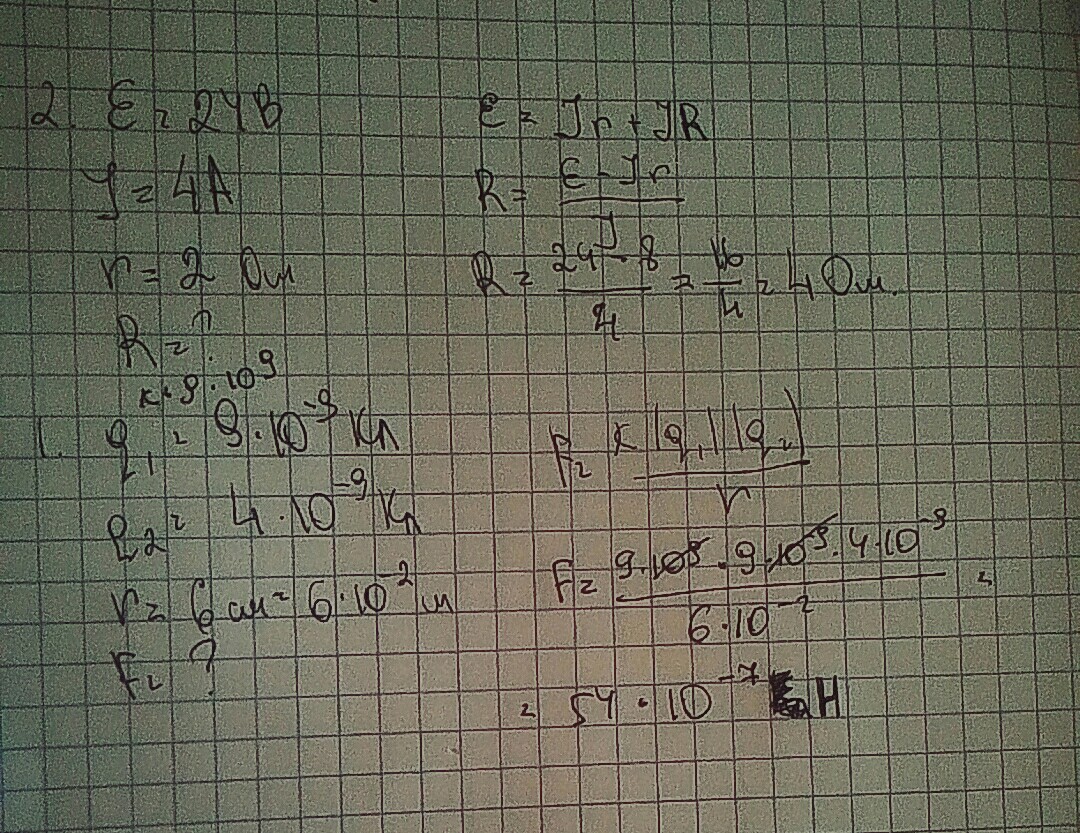 2. Ɛ = 24 В
J = 4А
r = 2 Ом
R = ?
Ɛ = Jr + JR
R = (Ɛ - Jr) / J
R = (24 - 8) / 4 = 16 / 4 = 4 Ом.
к = 9 · 10⁹
1. q₁ = 9 · 10⁻⁹ Кл
q₂ = 4 · 10⁻⁹ Кл
r = 6 см = 6 · 10⁻² м
F = ?
F = к |q₁| |q₂| / r
F = (9 · 10⁹ · 9 · 10⁻⁹ · 4 · 10⁻⁹) / (6 · 10⁻²) =
= 54 · 10⁻⁷ Н